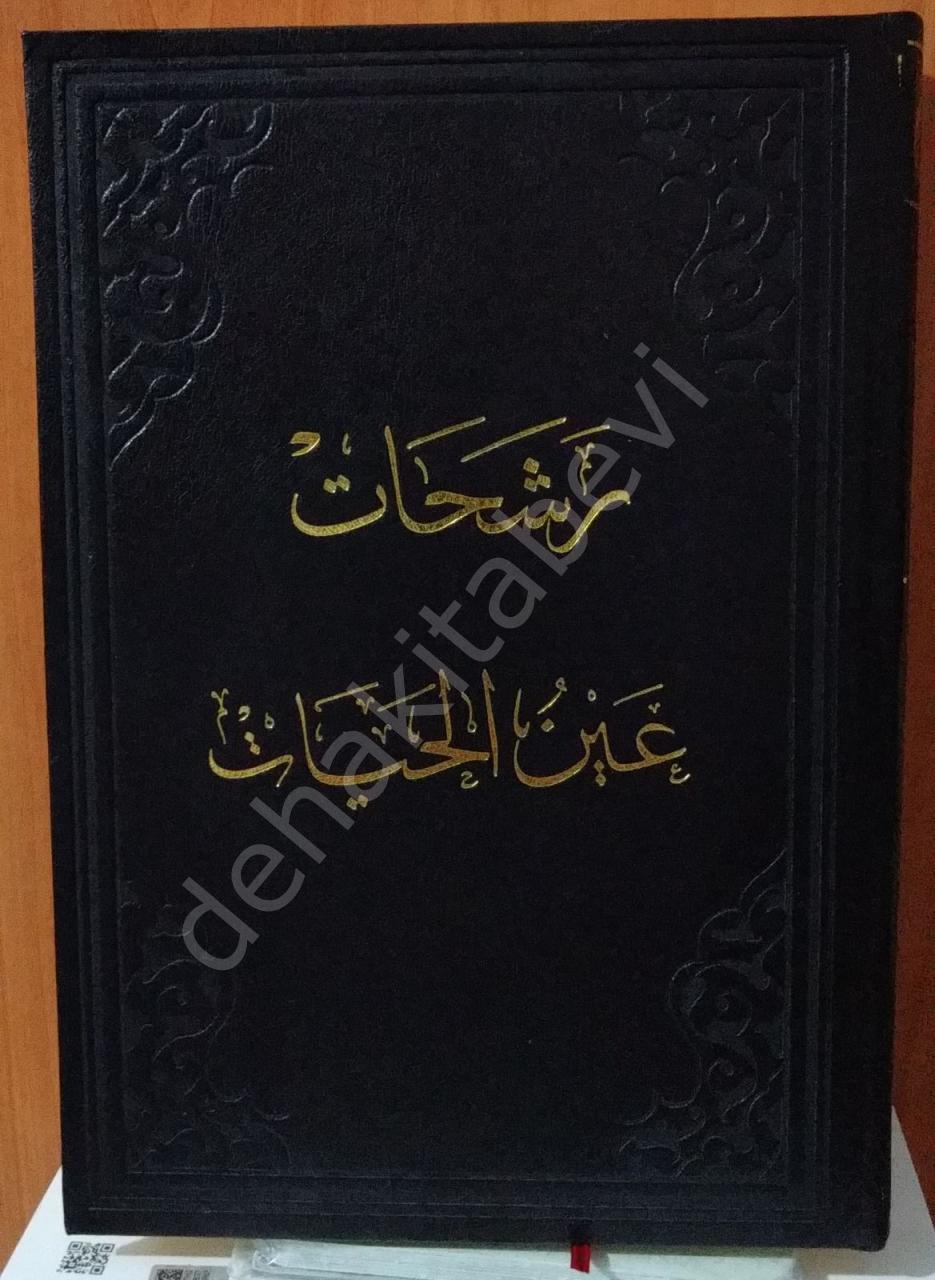 رَشَحَات
عَيْنُ الْحَيَات
dehakitabevi